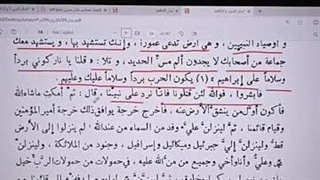 و أوصياء النبيين، و هي أرض تدعى عمورا، و إنك تستشهد بها، و يستشهد معك
جماعة من أصحابك لا يجدون ألم مس الحديد، و تلا: « قلنا يا نار كوني برداً
وسلاماً على إبراهيم » (١) يكون الحرب برداً وسلاماً عليك وعليهم.
فابشروا، فوالله لئن قتلونا فإنا نرد على نبينا، قال: ثم أمكث ماشاء الله
فأكون أول من ينشق الأرض عنه، فأخرج خرجة يوافق ذلك خرجة أمير المؤمنين
وقيام قائمنا، ثم لينزلن علي وفد من السماء من عند الله، لم ينزلوا إلى الأرض
قط ولينزلن إلي جبرئيل وميكائيل وإسرافيل، وجنود من الملائكة، ولينزلن
محمد وعلي وأنا وأخي وجميع من من الله عليه، في حمولات من حمولات الرب خيل